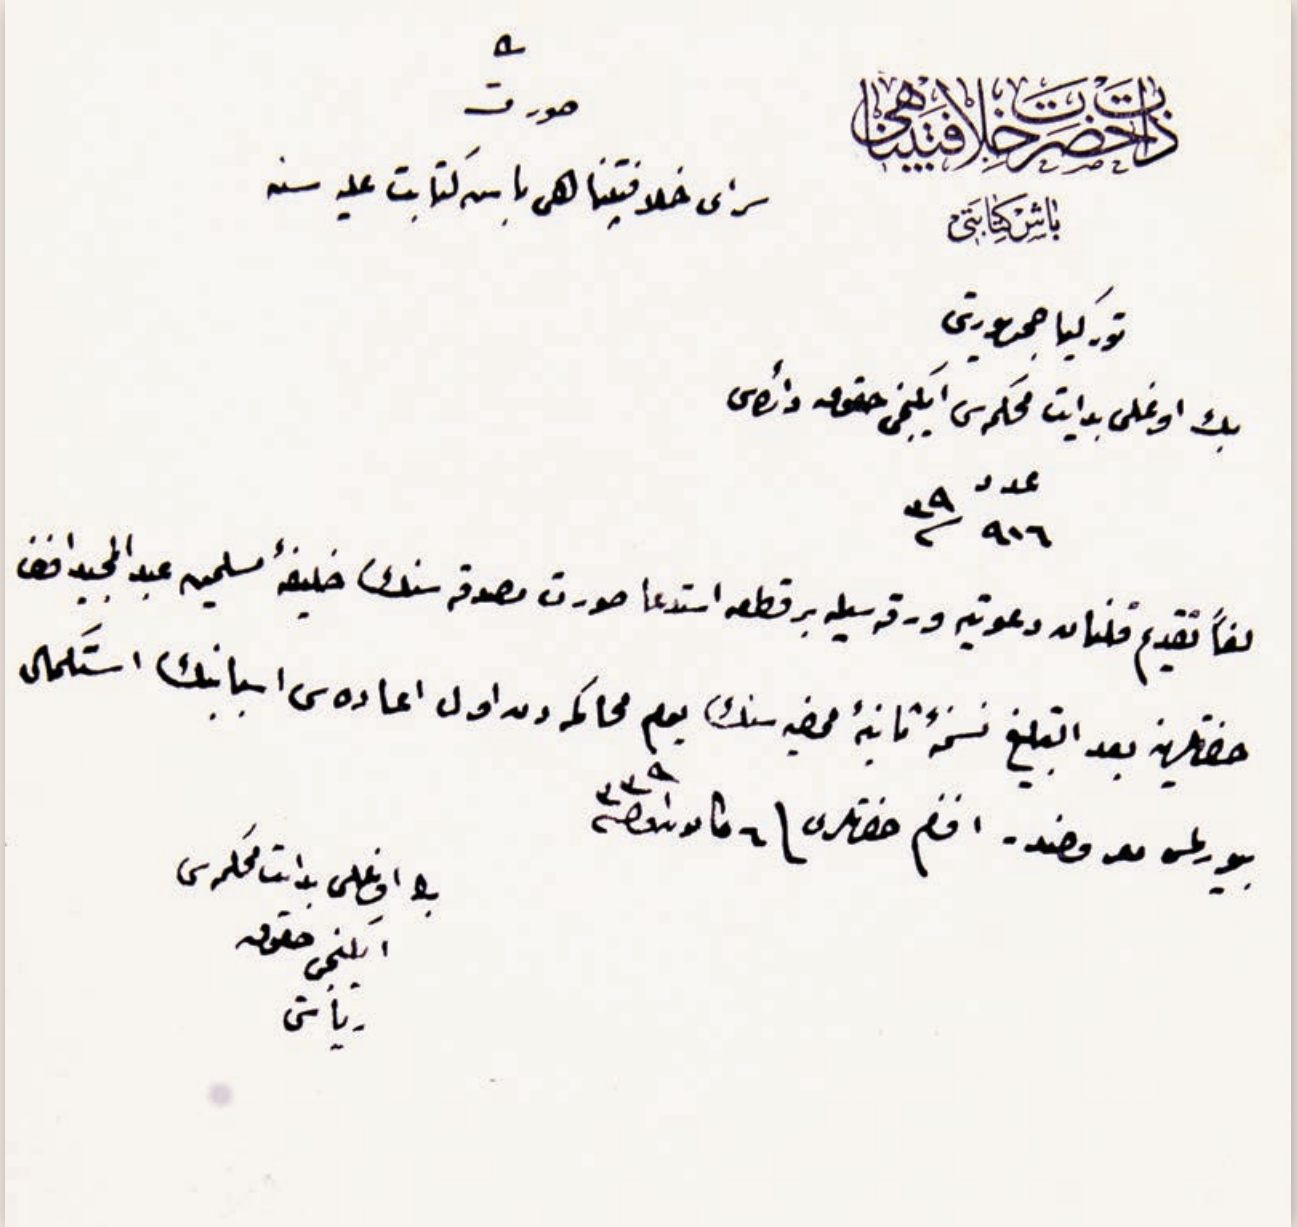 ذات حضرت خلافتپناهی
باش كتابتی
صورت
سرای خلافتپناهی باش كتابت علیه سنه
توركیا جمهوریتی
بك اوغلی بدایت محكمه‌سی ایكنجی حقوق دائره‌سی
عدد
٩٠٦ / ٣٩
لفاً تقدیم قلنان دعوتیه ورقه سیله بر قطعه استدعا صورت مصدقه سنك خلیفهٔ مسلمین عبد المجید افندی
حضرتلرینه بعد التبلیغ نسخهٔ ثانیهٔ ممضیه سنك یوم محاكمه دن اول اعاده سی اسبابنك استكمالی
بیورلمسی معروضدر افندم حضرتلری ٦ كانون اول ٣٣٩
بك اوغلی بدایت محكمه‌سی
ایكنجی حقوق
ریاستی